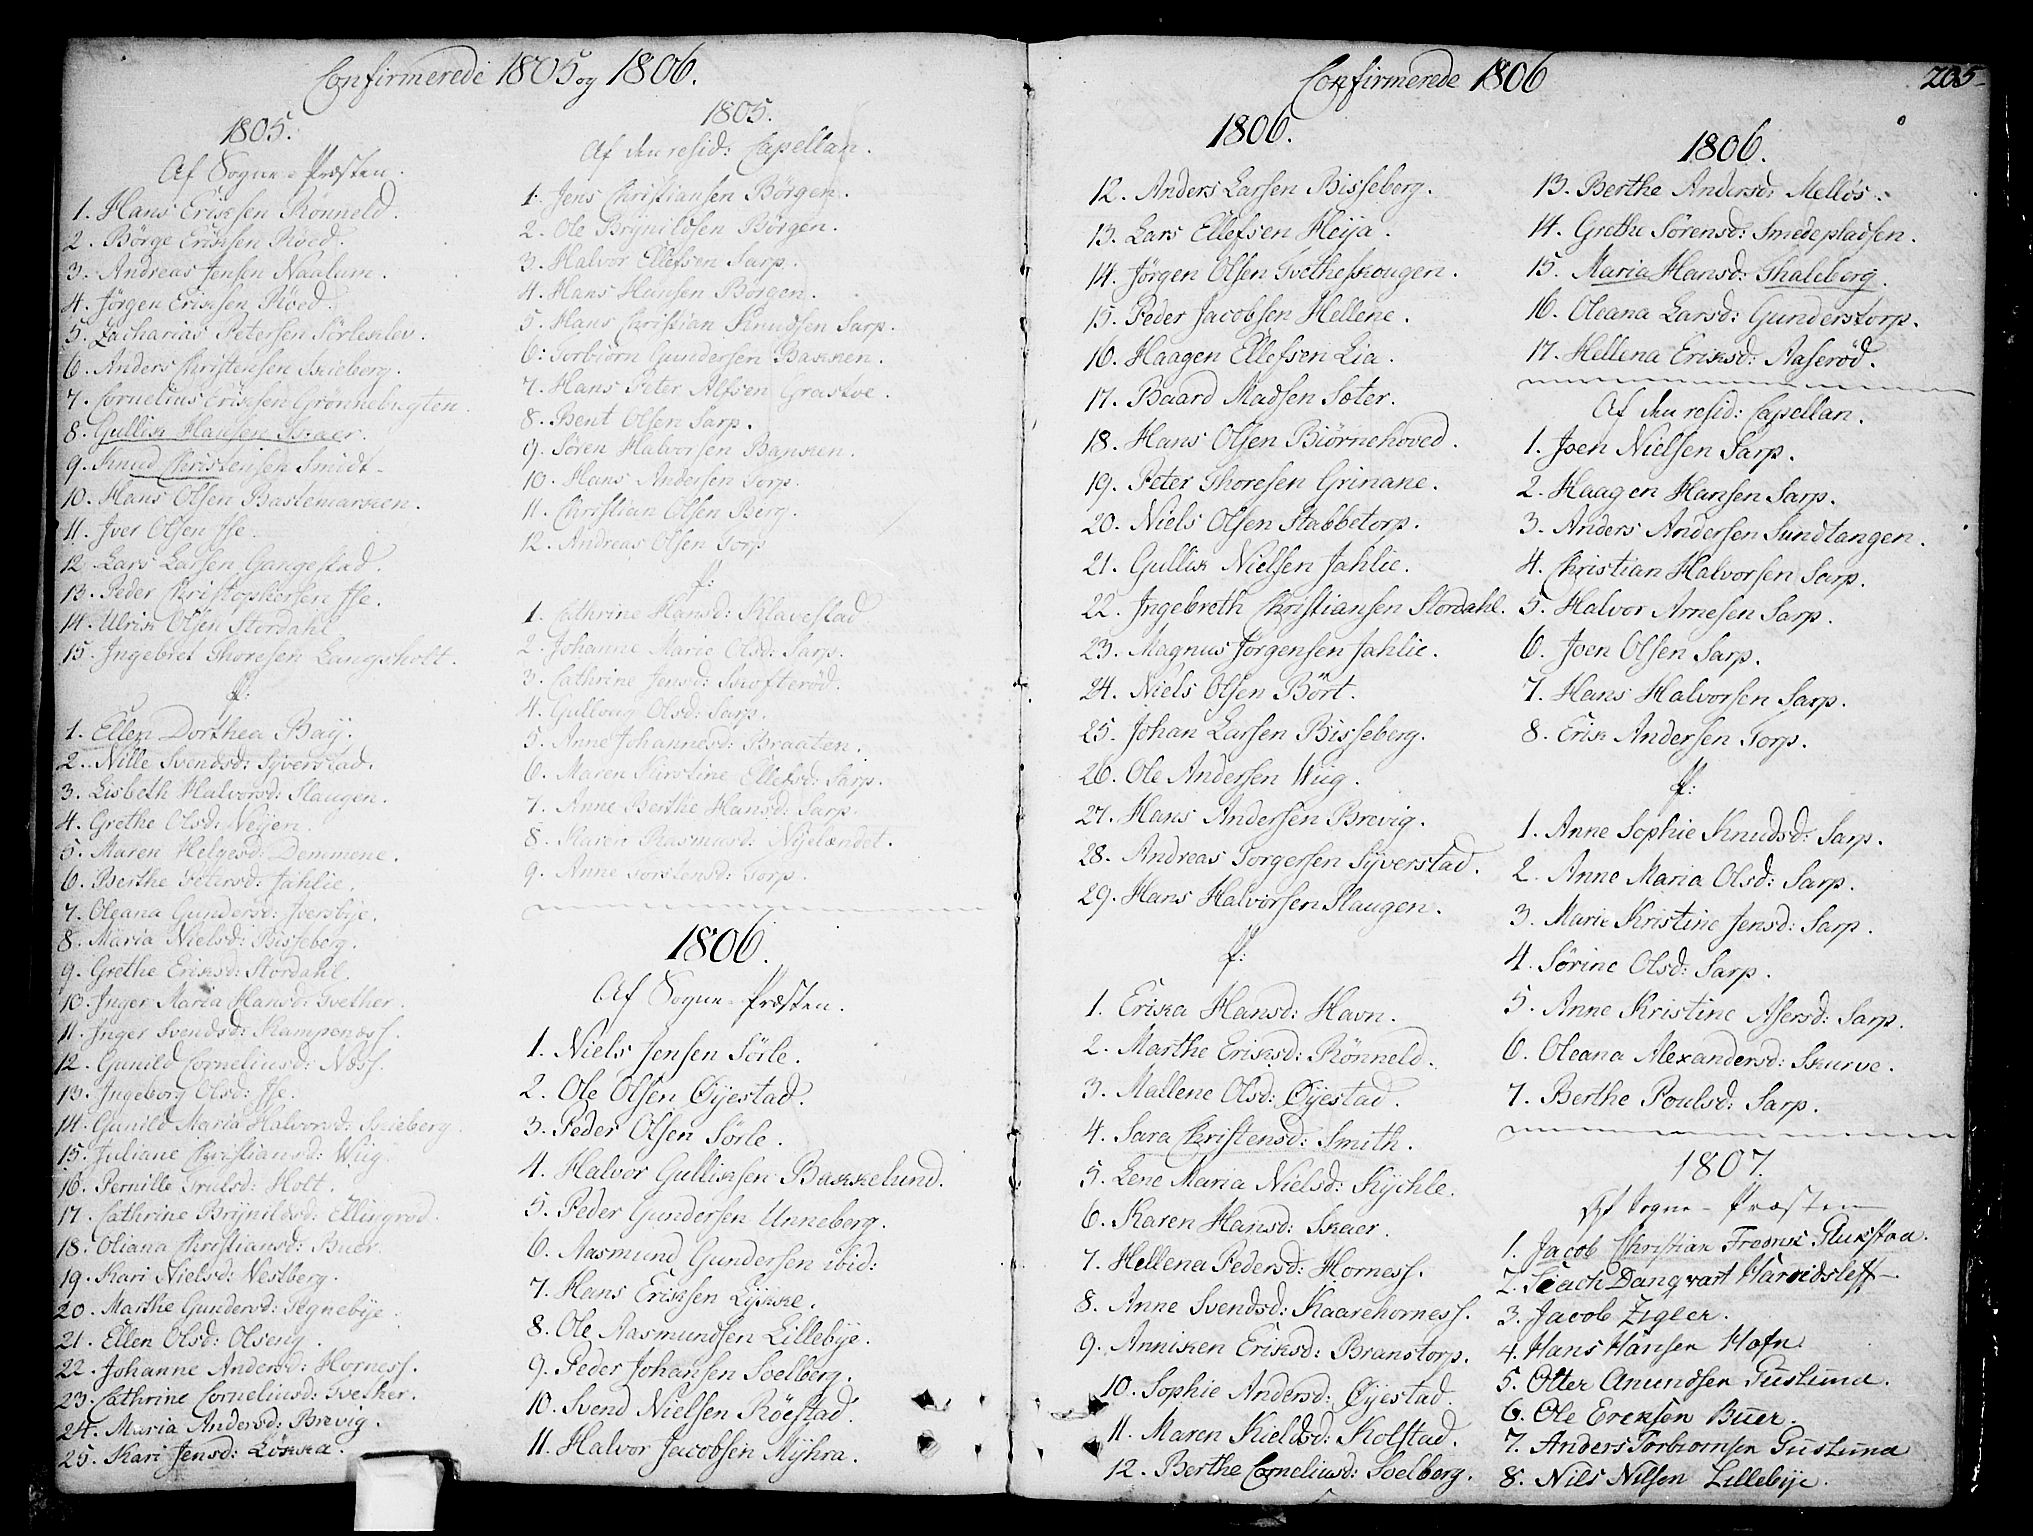 Confirmerede 1805 og 1806.
1805.
Af Sogne-Præsten.
1. Hans Eriksen Rønneld.
2. Børge Eriksen Røed.
3. Andreas Jensen Naalum.
4. Jørgen Eriksen Röed.
5. Zacharias Petersen Sörleklev.
6. Anders Christensen Skieberg.
7. Cornelius Eriksen Grønnebugten.
8. Gullik Hansen Skaer.
9. Knud Christensen Smidt.
10. Hans Olsen Bastemarken.
11. Iver Olsen Ise.
12. Lars Larsen Gangestad.
13. Peder Christophersen Ise.
14. Ulrik Olsen Stordahl
15. Ingebret Thoresen Langsholt.
f:
1. Ellen Dorthea Baÿ.
2. Nille Svendsd: Syverstad.
3. Lisbeth Halvorsd: Haugen.
4. Grethe Olsd: Veÿen.
5. Maren Helgesd: Demmene.
6. Berthe Petersd: Jahlie.
7. Oleana Gundersd: Iversbÿe.
8. Maria Nielsd: Bisseberg.
9. Grethe Eriksd: Stordahl.
10. Inger Maria Hansd: Tvether.
11. Inger Svendsd: Kampenæss.
12. Gunild Corneliusd: Næss.
13. Ingeborg Olsd: Ise.
14. Gunild Maria Halvorsd: Skieberg.
15. Juliane Christiansd: Wiig.
16. Pernille Trulsd: Holt.
17. Cathrine Brÿnildsd: Ellingrød.
18. Oliana Christiansd: Buer.
19. Kari Nielsd: Vestberg.
20. Marthe Gundersd: Tognebÿe.
21. Ellen Olsd: Olseng.
22. Johanne Andersd: Horness.
23. Cathrine Corneliusd: Tvether.
24. Maria Andersd: Brevig.
25. Kari Jensd: Løkka.
1805.
Af den resid: Capellan.
1. Jens Christiansen Börgen.
2. Ole Brÿnildsen Börgen.
3. Halvor Ellefsen Sarp.
4. Hans Hansen Börgen.
5. Hans Christian Knudsen Sarp.
6. Torbiörn Gundersen Bakken.
7. Hans Peter Alfsen Grastve.
8. Bent Olsen Sarp.
9. Sören Halvorsen Bakken.
10. Hans Andersen Torp.
11. Christian Olsen Berg.
12. Andreas Olsen Torp
f:
1. Cathrine Hansd: Klavestad
2. Johanne Marie Olsd: Sarp.
3. Cathrine Jensd: Skofteröd.
4. Gulloug Olsd: Sarp.
5. Anne Johannesd: Braaten.
6. Maren Kirstine Ellefsd: Sarp.
7. Anne Berthe Hansd: Sarp.
8. Karen Rasmusd: Nÿelændet.
9. Anne Torstensd: Torp.
1806.
Af Sogne-Præsten.
1. Niels Jensen Sörle.
2. Ole Olsen Øÿestad.
3. Peder Olsen Sörle.
4. Halvor Gulliksen Bakkelund.
5. Peder Gundersen Unneberg.
6. Aasmund Gundersen ibid:
7. Hans Eriksen Lÿkke.
8. Ole Aasmundsen Lillebÿe.
9. Peder Johansen Soelberg.
10. Svend Nielsen Röestad.
11. Halvor Jacobsen Mÿhra.
Confirmerede 1806
205
1806.
12. Anders Larsen Bisseberg.
13. Lars Ellefsen Heÿa.
14. Jörgen Olsen Tvetheskougen.
15. Peder Jacobsen Hellene.
16. Haagen Ellefsen Lia.
17. Baard Madsen Sæter.
18. Hans Olsen Biörnehoved.
19. Peter Thoresen Grinane.
20. Niels Olsen Stabbetorp.
21. Gullik Nielsen Jahlie.
22. Ingebreth Christiansen Stordahl.
23. Magnus Jörgensen Jahlie.
24. Niels Olsen Bört.
25. Johan Larsen Bisseberg.
26. Ole Andersen Wiig.
27. Hans Andersen Brevig.
28. Andreas Torgersen Sÿverstad.
29. Hans Halvorsen Haugen.
f:
1. Erika Hansd: Havn.
2. Marthe Eriksd: Rönneld.
3. Mallene Olsd: Øÿestad.
4. Sara Christensd: Smith.
5. Lene Maria Nielsd: Kÿhle.
6. Karen Hansd: Skaer.
7. Hellena Pedersd: Horness.
8. Anne Svendsd: Kaarehorness.
9. Anniken Eriksd: Branstorp.
10. Sophie Andersd: Øÿestad.
11. Maren Kieldsd: Kolstad.
12. Berthe Corneliusd: Soelberg.
1806.
13. Berthe Andersd: Mellös.
14. Grethe Sörensd: Smedepladsen.
15. Maria Hansd: Thaleberg.
16. Oleana Larsd: Gunderstorp.
17. Hellena Eriksd: Aaseröd.
Af den resid: Capellan.
1. Joen Nielsen Sarp.
2. Haagen Hansen Sarp.
3. Anders Andersen Sundtangen.
4. Christian Halvorsen Sarp.
5. Halvor Arnesen Sarp.
6. Joen Olsen Sarp.
7. Hans Halvorsen Sarp.
8. Erik Andersen Torp.
f:
1. Anne Sophie Knudsd: Sarp.
2. Anne Maria Olsd: Sarp.
3. Marie Kristine Jensd: Sarp.
4. Sörine Olsd: Sarp.
5. Anne Kristine Asersd: Sarp.
6. Oleana Alexandersd: Skurve.
7. Berthe Poulsd: Sarp.
1807.
Af Sogne-Præsten
1. Jacob Christian Fredrik Glukstad.
2. Dangvart
3. Jacob Zigler.
4. Hans Hansen Hafn
5. Otter Anundsen Guslund.
6. Ole Ericksen Buer.
7. Anders Torbiornsen Guslund
8. Nils Nilsen Lillebÿe.